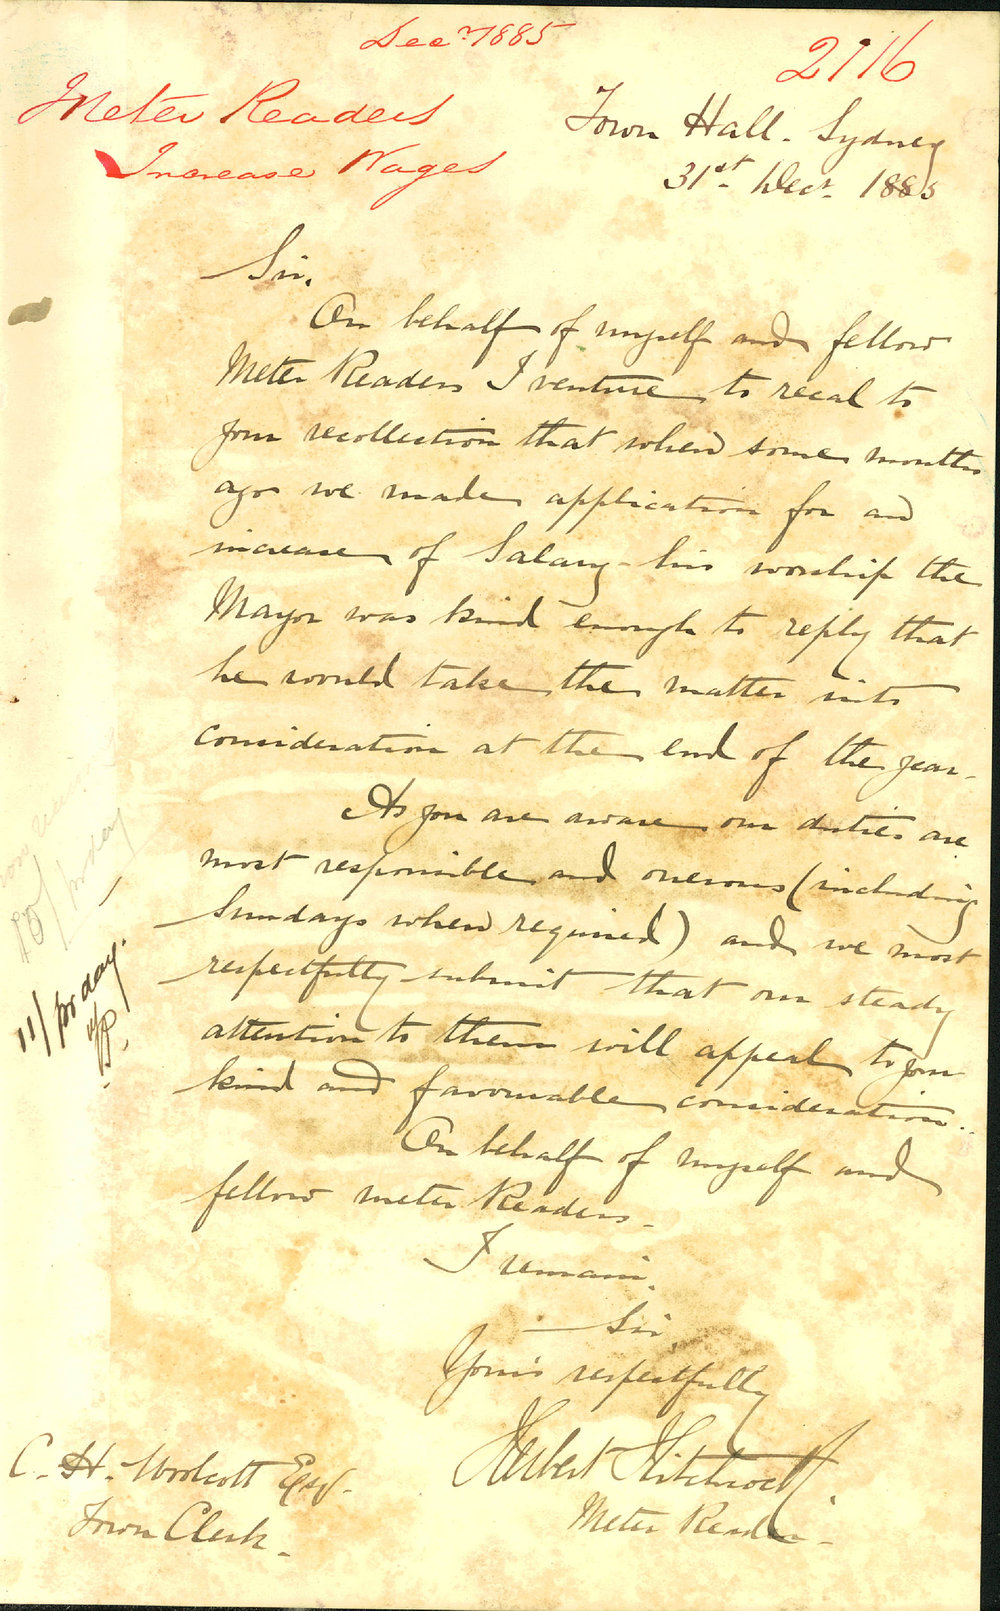 Decr 1885
2716
Meter Readers
Increase Wages
Town Hall. Sydney
31st Decr. 1885
Sir,
On behalf of myself and fellow
Meter Readers I venture to recal to
your recollection that when some months
ago we made application for an
increase of Salary - his worship the
Mayor was kind enough to reply that
he would take the matter into
consideration at the end of the year.
As you are aware our duties are
most responsible and onerous (including
Sundays when required) and we most
respectfully submit that our steady
attention to them will appeal to your
kind and favourable consideration.
On behalf of myself and
fellow meter Readers.
I remain,
Sir,
Yours respectfully
Herbert Hitchcock.
Meter Reader.
C. H. Woolcott Esq.
Town Clerk.
11/ per day.